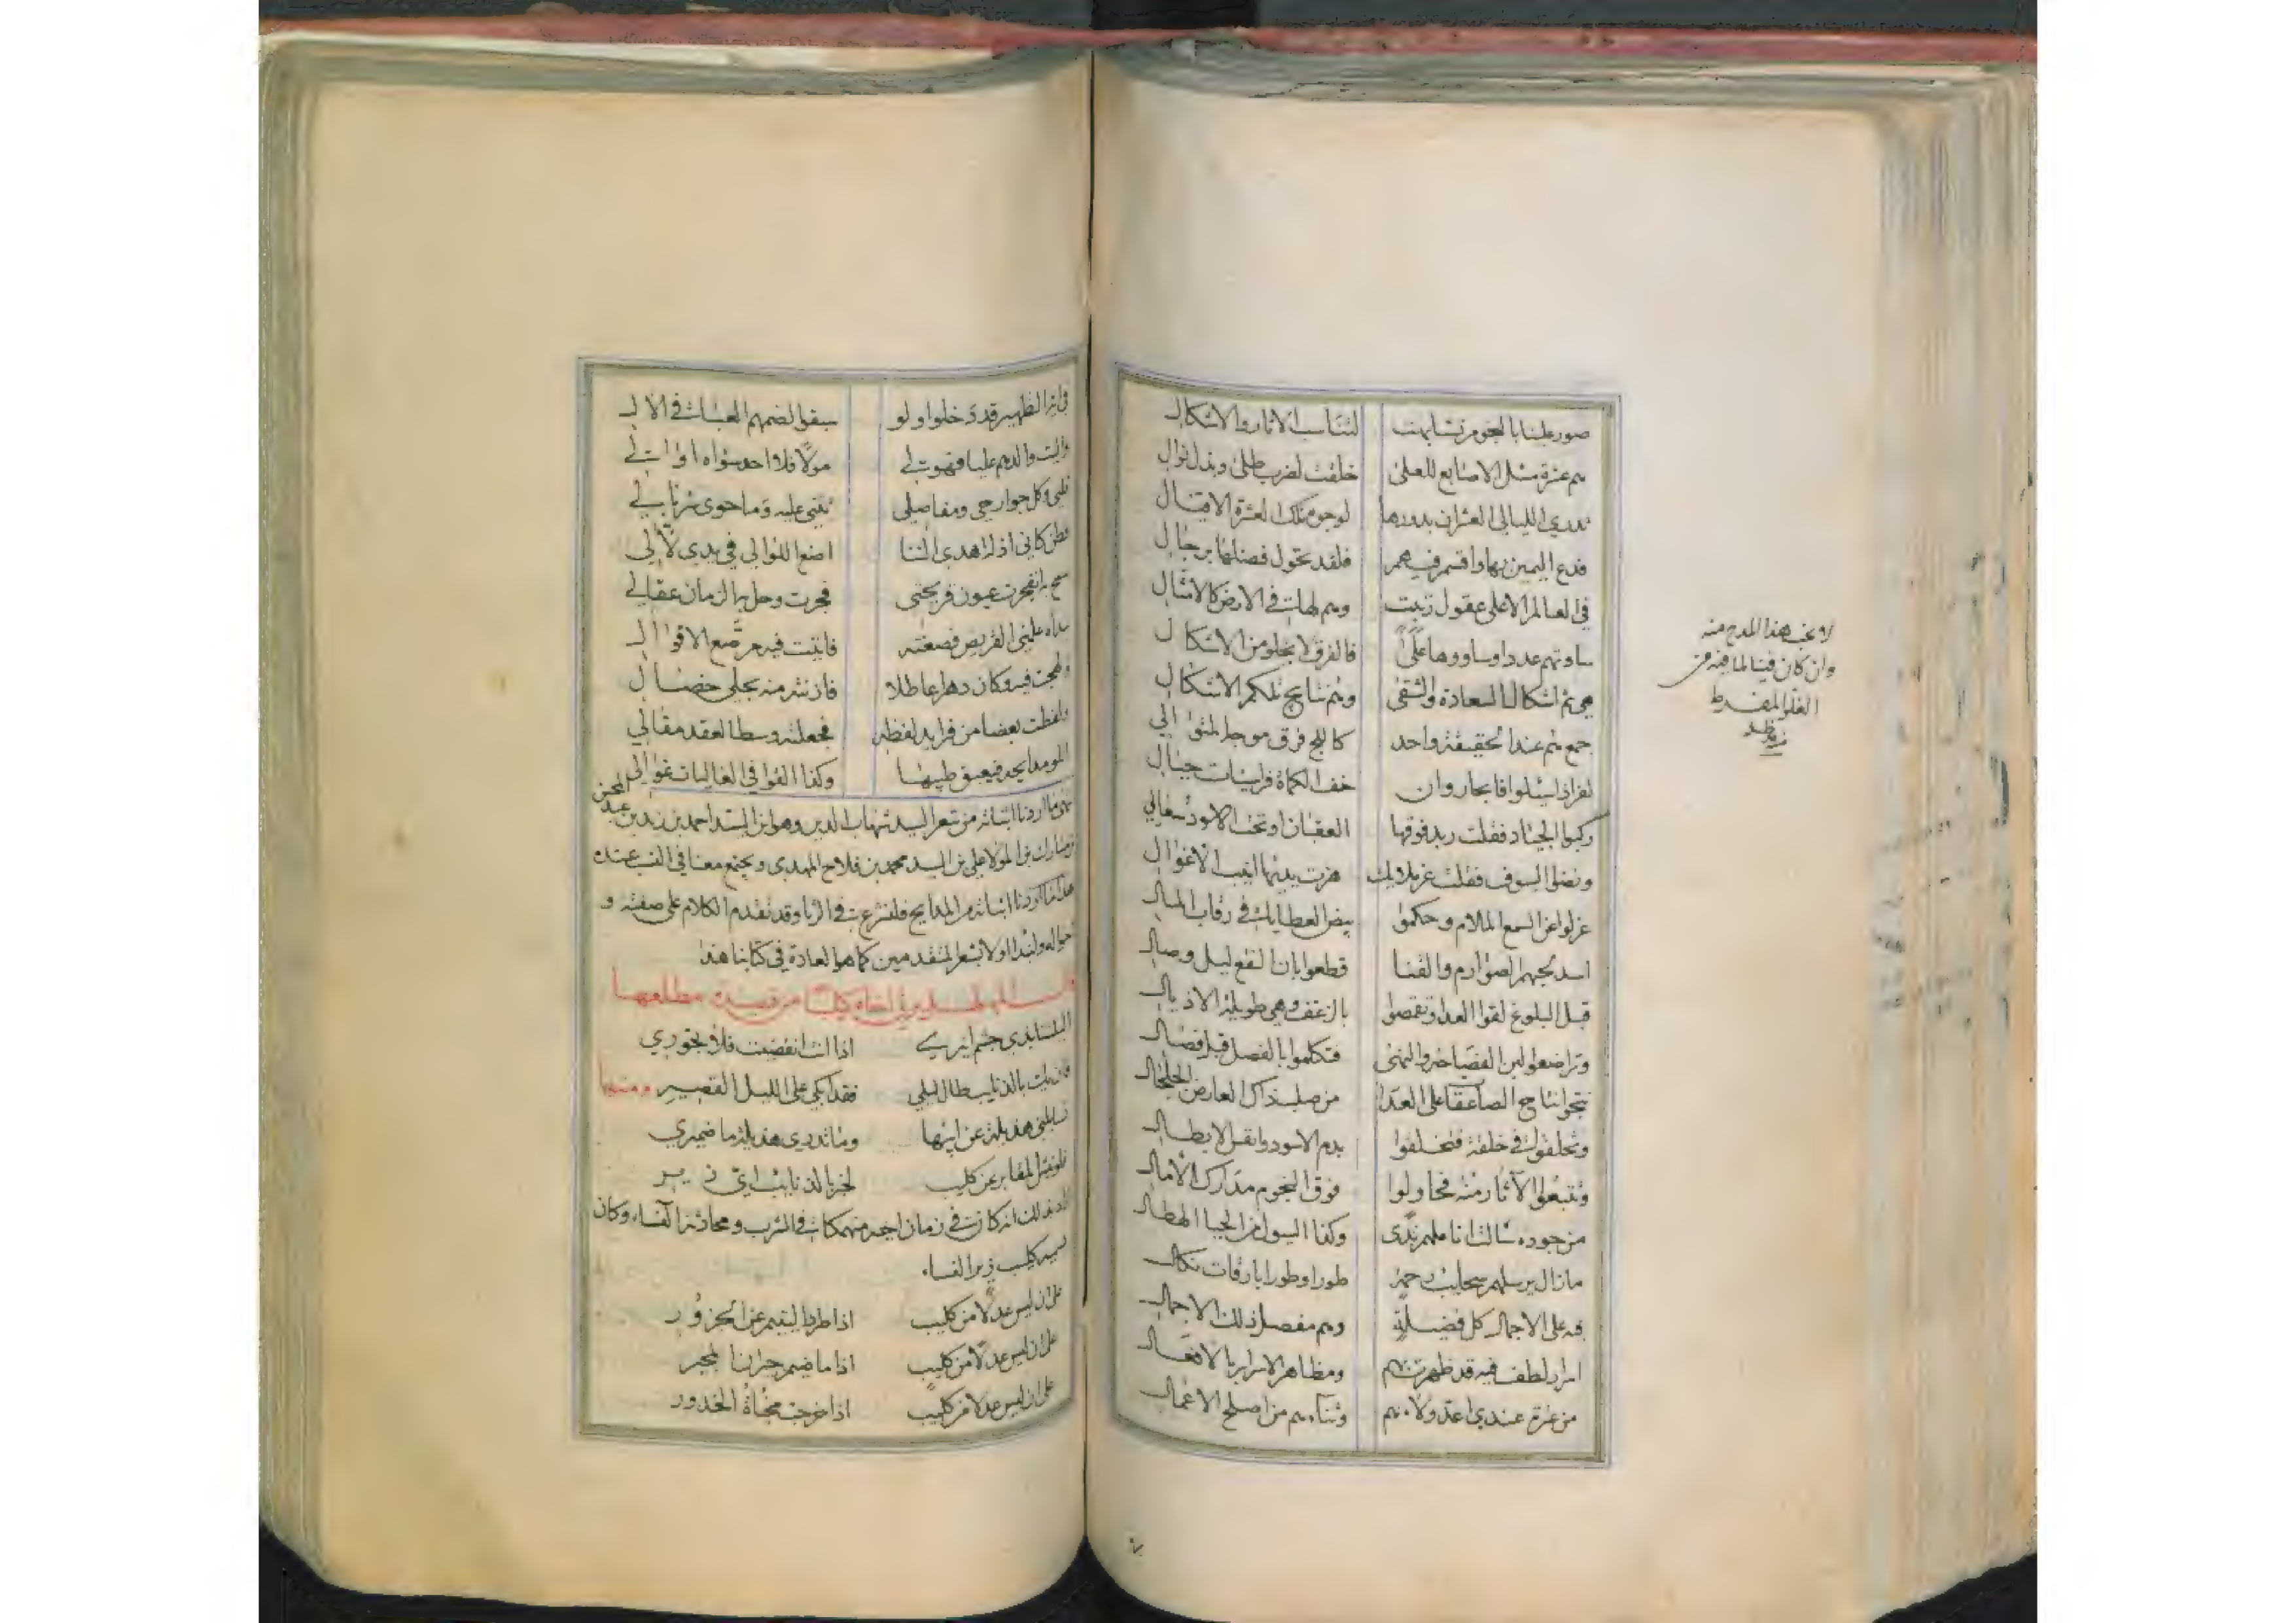 صور علينا بالنجوم تشابهت لتناسب الاثار والاشكال
هم عشرة مثل الاصابع للعلى خلقت لضرب طلى وبذل نوال
تدري الليالي العشران بدورها لوجوه تلك العشرة الاقيال
فدع اليمين بها واقسم فيهم فلقد تحول فضلها برجال
في العالم الاعلى عقول زينت وهم لهات في الارض كالامثال
ساوتهم عددا وساووها علًى فالفرق لا يخلو من الاشكال
هي ثم اشكال السعادة والشقى وهم نتايج تلكم الاشكال
جمع هم عند الحقيقة واحد كاللج فرق موجه المتوالي
لغر اذا سيلوا فابحار وان خف الكماة فراسيات جبال
ركبوا الجياد فقلت ربد فوقها العقبان او تحت الاسود سعالي
ونضوا السيوف فقلت هزت يديها انيب الاغوال
عزلوا عن السمع الملام وحكموا بيض العطايا في رقاب المال
اسد تجهم الصوارم والقنا قطعوا بان النقع ليل وصال
قبل البلوغ لقوا العدا وتقمصوا بالزعف وهي طويلة الاذيال
وتراضعوا لبن الفصاحة والنهى فتكلموا بالفصل قبل فصال
نتجوا نتاج الصاعقا على العدا من صلب ذاك العارض الجلجال
وتخلقوا في خلقه فتخلقوا بدم الاسود وانفس الابطال
وتتبعوا الآثار منه فحاولوا فوق النجوم مدارك الآمال
من جوده سالت اناملهم ندى وكفا السيول من الحيا الهطال
ما زال يرسلهم سحايب رحمة طورا وطورا بارقات نكال
فه على الاجمال كل فضيلة وهم مفصل ذلك الاجمال
اسرار لطف فيه قد ظهرت بهم ومظاهر الاسرار بالافعال
من عزة عندي اعد ولاءهم وثناءهم من اصلح الاعمال
لا يخب هذا المدح منه
وان كان فينا لما فيه من
الغلو المفرط
في اية التطهير قد دخلوا ولو سبقوا لضمهم العبا في الال
واليت والدهم عليا فهو لي مولًا فلا احد سواه اوالي
قلبي وكل جوارحي ومفاصلي تثني عليه وما حوى سربالي
فطن كاني اذ له اهدي الثنا اضع اللوالي في يدي لآلي
سمح به انفجرت عيون قريحتي فجرت وحل بها الزمان عقالي
مداه علمني القريض فصغته فاتيت فيه مرصع الاقوال
ولهجت فيه وكان دهرا عاطلا فازنته منه بحلي خصال
ولفظت بعضا من فرايد لفظه فجعلته وسط العقد مقالي
المو مدايحه فيعبق طيبها وكذا القوافي الغاليات غوالي
ما اردنا اثباته من شعر السيد شهاب الدين وهو ابن السيد احمد بن زيد بن عبد المحسن
بن المولا علي بن السيد محمد بن فلاح المهدي ويجتمع معنا في النسب عنده
ما اردنا اثباته من المدايح فلنشرع في الرثا وقد تقدم الكلام على صفته و
احواله ولنبدا اولا بشعر المتقدمين كما هو العادة في كتابنا هذا
قال المهلهل يرثي اخاه كليبا من قصيدة مطلعها
اليلتنا بذي حسم انيري اذا انت انقضيت فلا تحوري
فان يك بالذنايب طال ليلي فقد ابكي على الليل القصير ومنها
تسايلني هذيلة عن ابيها وما تدري هذيلة ما ضميري
فلو نبش المقابر عن كليب لخبر بالذنايب اي زير
اراد بذلك انه كان في زمان اخيه منهمكا في الشرب ومحادثة النساء وكان
يسميه كليب زير النساء
على ان ليس عدلا من كليب اذا طرد اليتيم عن الجزور
على ان ليس عدلا من كليب اذا ما ضيم جيران المجير
على ان ليس عدلا من كليب اذا خرجت مخباة الخدور